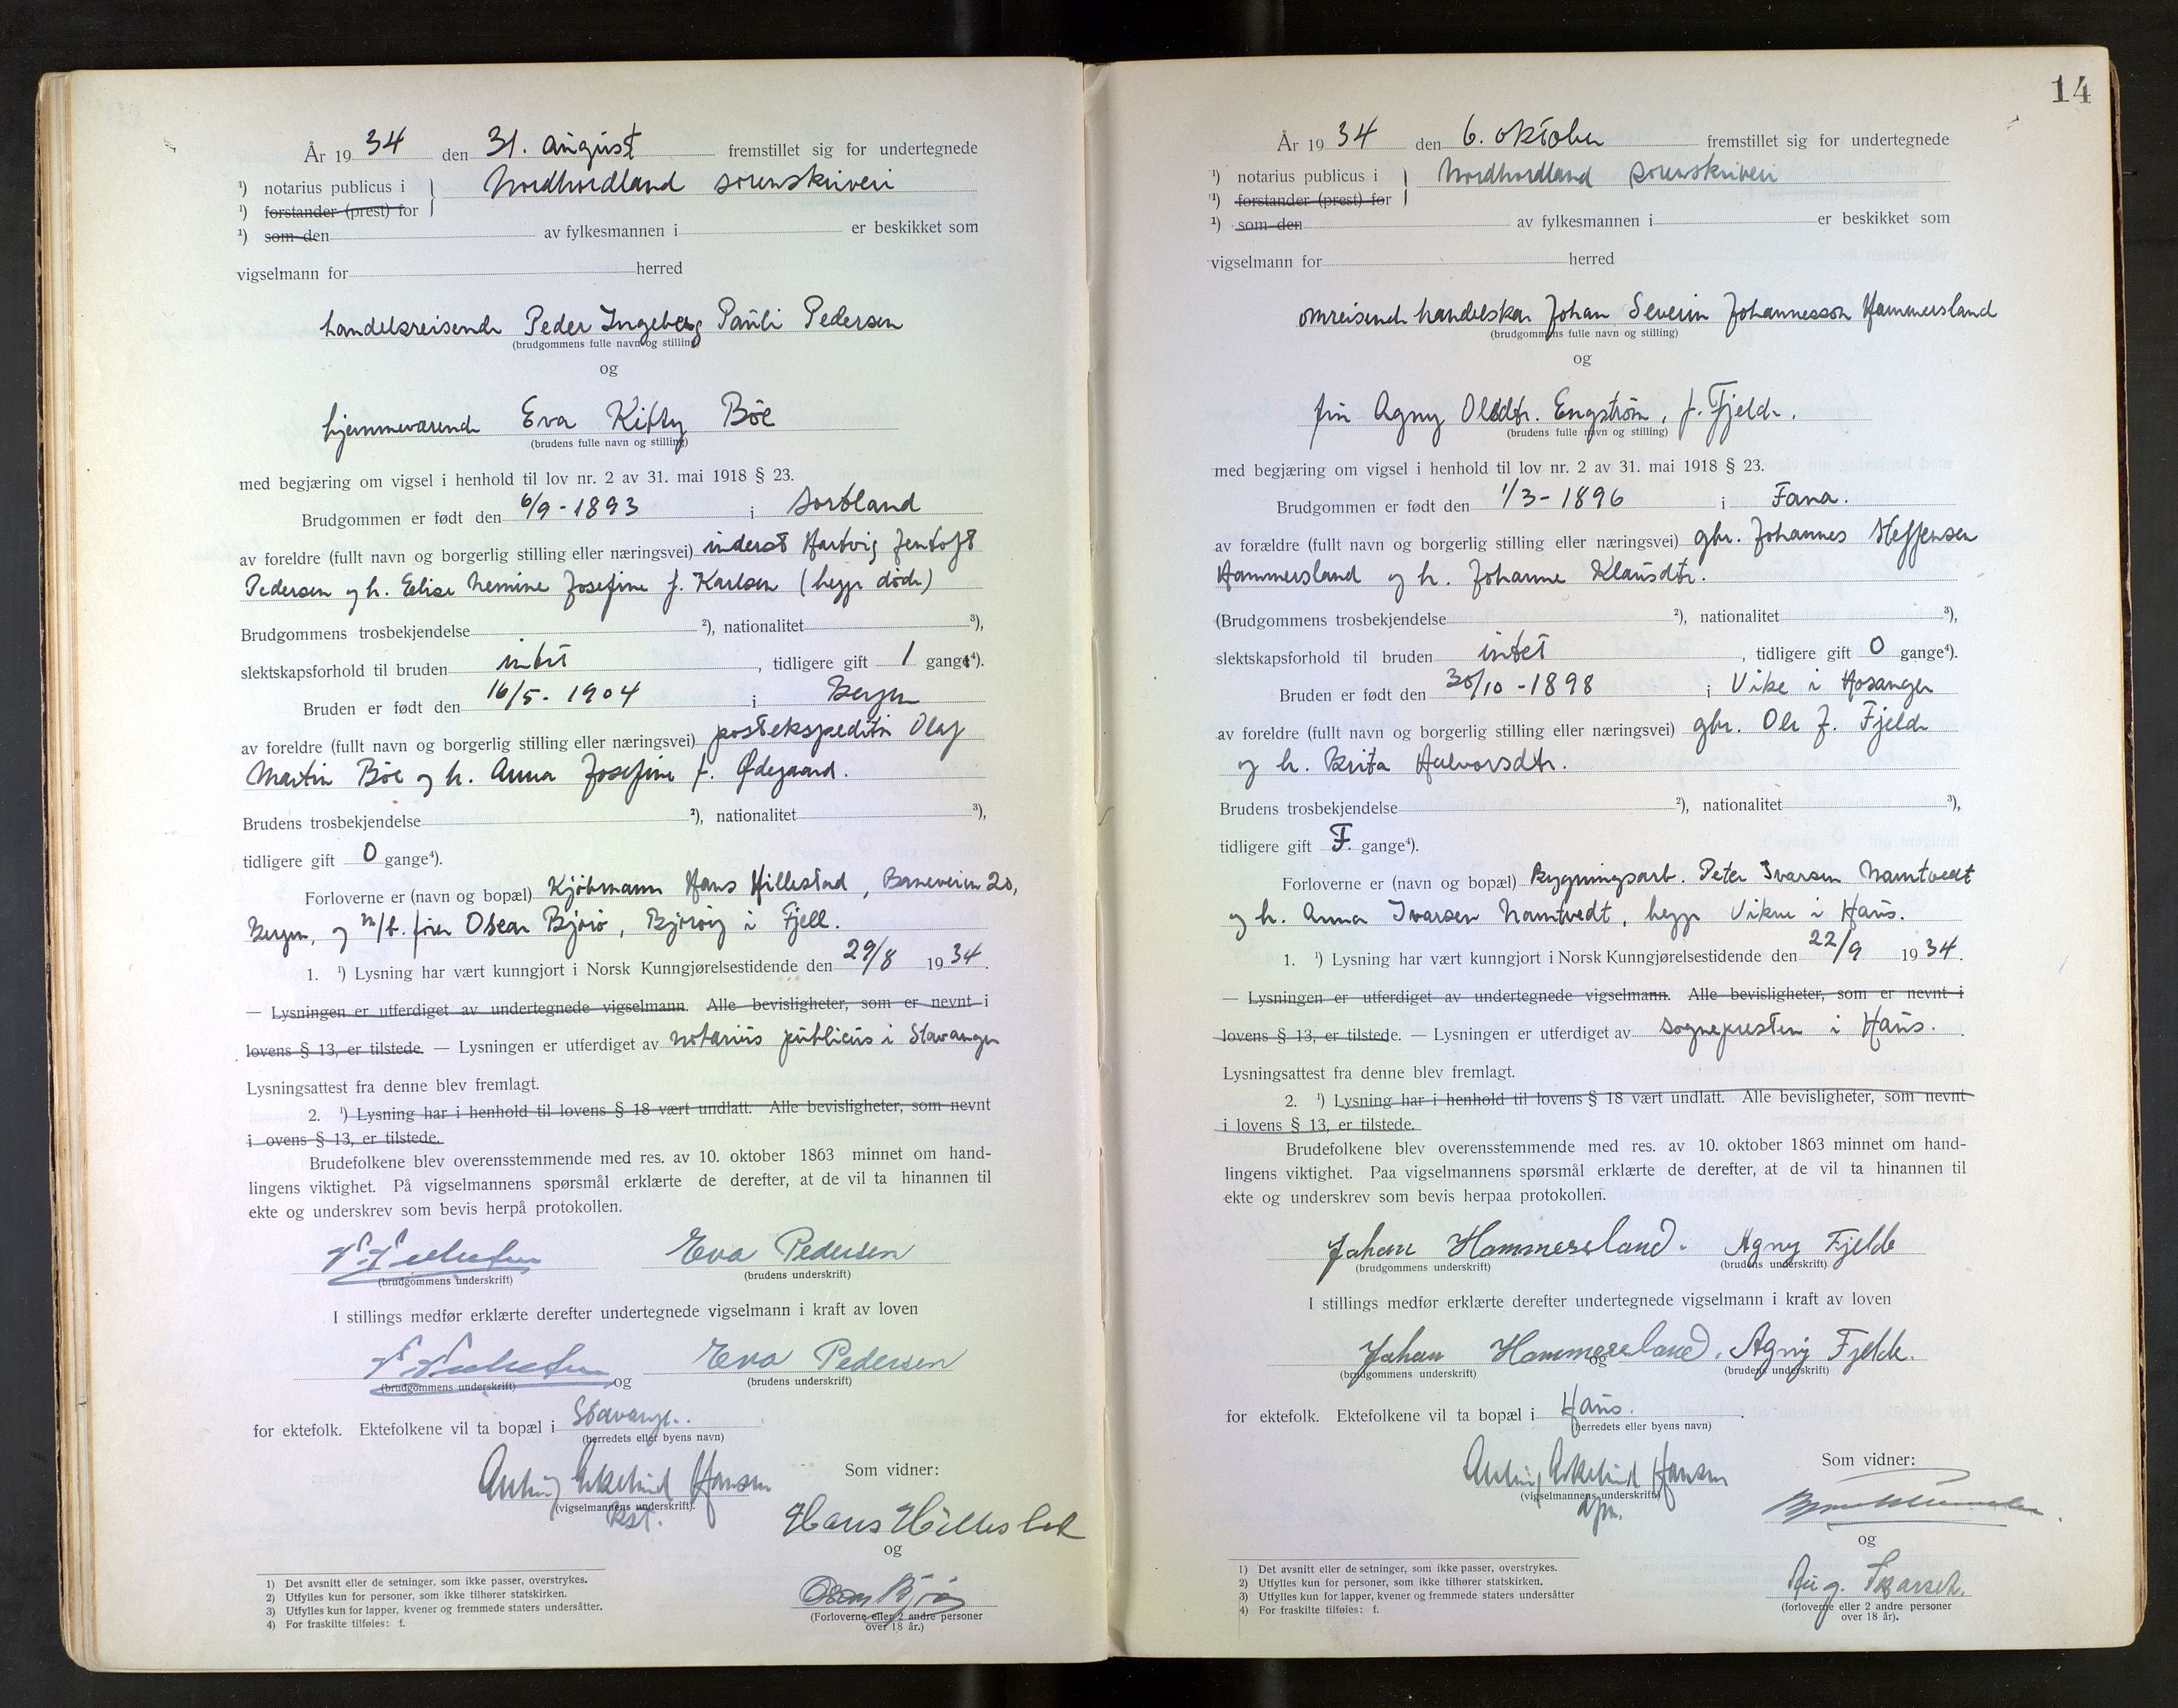 År 1934 den 31. august fremstillet sig for undertegnede
¹) notarius publicus i Nordhordland sorenskriveri
¹) forstander (prest) for
¹) som den av fylkesmannen i er beskikket som
vigselmann for herred
handelsreisende Peder Ingeberg Pauli Pedersen
(brudgommens fulle navn og stilling)
og
hjemmeværende Eva Kitty Böe
(brudens fulle navn og stilling)
med begjæring om vigsel i henhold til lov nr. 2 av 31. mai 1918 § 23.
Brudgommen er født den 6/9-1893 i Sortland
av foreldre (fullt navn og borgerlig stilling eller næringsvei) inderst Hartvig Jentoft
Pedersen og h. Elise Nemine Josefine f. Karlsen (begge døde)
Brudgommens trosbekjendelse ²), nationalitet ³),
slektskapsforhold til bruden intet, tidligere gift 1 gang⁴).
Bruden er født den 16/5-1904 i Bergen
av foreldre (fullt navn og borgerlig stilling eller næringsvei) postekspeditør Olaf
Martin Böe og h. Anna Josefine f. Ødegaard.
Brudens trosbekjendelse ²), nationalitet ³),
tidligere gift 0 gange⁴).
Forloverne er (navn og bopæl) Kjöbmann Hans Hillestad, Baneveien 20,
Bergen, og m/b. fører Oscar Bjørø, Bjørøy i Fjell.
1. ¹) Lysning har vært kunngjort i Norsk Kunngjørelsestidende den 29/8 1934.
— Lysningen er utferdiget av undertegnede vigselmann. Alle bevisligheter, som er nevnt i
lovens § 13, er tilstede. — Lysningen er utferdiget av notarius publicus i Stavanger
Lysningsattest fra denne blev fremlagt.
2. ¹) Lysning har i henhold til lovens § 18 vært undlatt. Alle bevisligheter, som nevnt
i ovens § 13, er tilstede.
Brudefolkene blev overensstemmende med res. av 10. oktober 1863 minnet om hand-
lingens viktighet. På vigselmannens spørsmål erklærte de derefter, at de vil ta hinannen til
ekte og underskrev som bevis herpå protokollen.
Eva Pedersen
(brudgommens underskrift) (brudens underskrift)
I stillings medfør erklærte derefter undertegnede vigselmann i kraft av loven
og Eva Pedersen
(brudgommens underskrift) (brudens underskrift)
for ektefolk. Ektefolkene vil ta bopæl i Stavanger.
(herredets eller byens navn)
Hansen
(vigselmannens underskrift).
kst.
Som vidner:
Hans Hillestad
og
Oscar Bjørø
(Forloverne eller 2 andre personer
over 18 år.)
1) Det avsnitt eller de setninger, som ikke passer, overstrykes.
2) Utfylles kun for personer, som ikke tilhører statskirken.
3) Utfylles kun for lapper, kvener og fremmede staters undersåtter.
4) For fraskilte tilføies: f.
14
År 1934 den 6. oktober fremstillet sig for undertegnede
¹) notarius publicus i Nordhordland sorenskriveri
¹) forstander (prest) for
¹) som den av fylkesmannen i er beskikket som
vigselmann for herred
omreisende handelskar Johan Severin Johannesson Hammersland
(brudgommens fulle navn og stilling)
og
fru Agny Olsdtr. Engström, f. Fjelde.
(brudens fulle navn og stilling)
med begjæring om vigsel i henhold til lov nr. 2 av 31. mai 1918 § 23.
Brudgommen er født den 1/3-1896 i Fana.
av forældre (fullt navn og borgerlig stilling eller næringsvei) gbr. Johannes Steffensen
Hammersland og h. Johanne Klausdtr.
(Brudgommens trosbekjendelse ²), nationalitet ³),
slektskapsforhold til bruden intet, tidligere gift 0 gange⁴).
Bruden er født den 30/10-1898 i Vike i Hosanger
av foreldre (fullt navn og borgerlig stilling eller næringsvei) gbr. Ole J. Fjelde
og h. Brita Halvorsdtr.
Brudens trosbekjendelse ²), nationalitet ³),
tidligere gift F. gange⁴).
Forloverne er (navn og bopæl) Bygningsarb. Peter Ivarsen Namtvedt
og h. Anna Ivarsen Namtvedt, begge Vikne i Haus.
1. ¹) Lysning har vært kunngjort i Norsk Kunngjørelsestidende den 22/9 1934.
— Lysningen er utferdiget av undertegnede vigselmann. Alle bevisligheter, som er nevnt i
lovens § 13, er tilstede. — Lysningen er utferdiget av sognepresten i Haus.
Lysningsattest fra denne blev fremlagt.
2. ¹) Lysning har i henhold til lovens § 18 vært undlatt. Alle bevisligheter, som nevnt
i lovens § 13, er tilstede.
Brudefolkene blev overensstemmende med res. av 10. oktober 1863 minnet om hand-
lingens viktighet. Paa vigselmannens spørsmål erklærte de derefter, at de vil ta hinannen til
ekte og underskrev som bevis herpaa protokollen.
Johan Hammersland. Agny Fjelde
(brudgommens underskrift) (brudens underskrift)
I stillings medfør erklærte derefter undertegnede vigselmann i kraft av loven
Johan Hammersland. og Agny Fjelde.
(brudgommens underskrift) (brudens underskrift)
for ektefolk. Ektefolkene vil ta bopæl i Haus.
(herredets eller byens navn)
Hansen
(vigselmannens underskrift)
Som vidner:
og
Aug.
(forloverne eller 2 andre personer
over 18 år).
1) Det avsnitt eller de setninger, som ikke passer, overstrykes.
2) Utfylles kun for personer, som ikke tilhører statskirken.
3) Utfylles kun for lapper, kvener og fremmede staters undersåtter
4) For fraskilte tilføies: f.